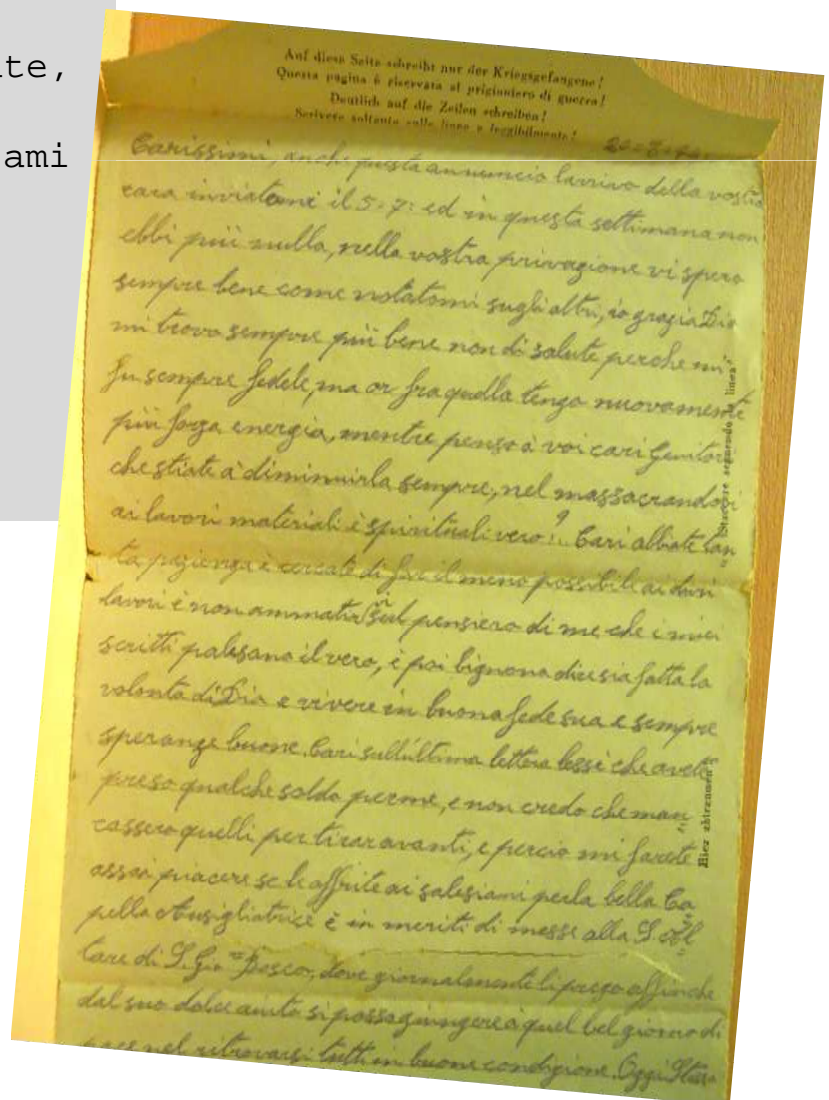 te,
ami
Auf diese Seite schreibt nur der Kriegsgefangene!
Questa pagina è riservata al prigioniero di guerra!
Deutlich auf die Zeilen schreiben!
Scrivere soltanto sulle linee e leggibilmente!
Carissimi, anche questa annuncio larrivo della vostra
cara inviatami il 5-7: ed in questa settimana non
ebbi più nulla, nella vostra privazione vi spero
sempre bene come notatomi sugli altri, io grazia Dio
mi trovo sempre più bene non di salute perche mi
fu sempre fedele, ma or fra quella tengo nuovamente
più forza energia, mentre penso à voi cari Genitori
che stiate à diminuirla sempre, nel massacrandovi
ai lavori materiali è spirituali vero!.. Cari abbiate tan
ta pazienza è cercate di far il meno possibile ai duri
lavori è non ammatir sul pensiero di me che i miei
scritti palesano il vero, è poi bignona dire sia fatta la
volonta di Dio e vivere in buona fede sua e sempre
speranze buone. Cari sull'ultima lettera lessi che avete
preso qualche soldo per me, e non credo che man
cassero quelli per tirar avanti, e percio mi farete
assai piacere se le offrite ai salesiani per la bella Ca
pella Ausigliatrice è in meriti di messe alla S. Al
tare di S. Gio= Bosco, dove giornalmente li prego affinche
dal suo dolce aiuto si possa giungere à quel bel giorno di
pace nel ritrovarsi tutti in buone condizione. Oggi
"Staccare seguendo la linea"
Hier abtrennen!